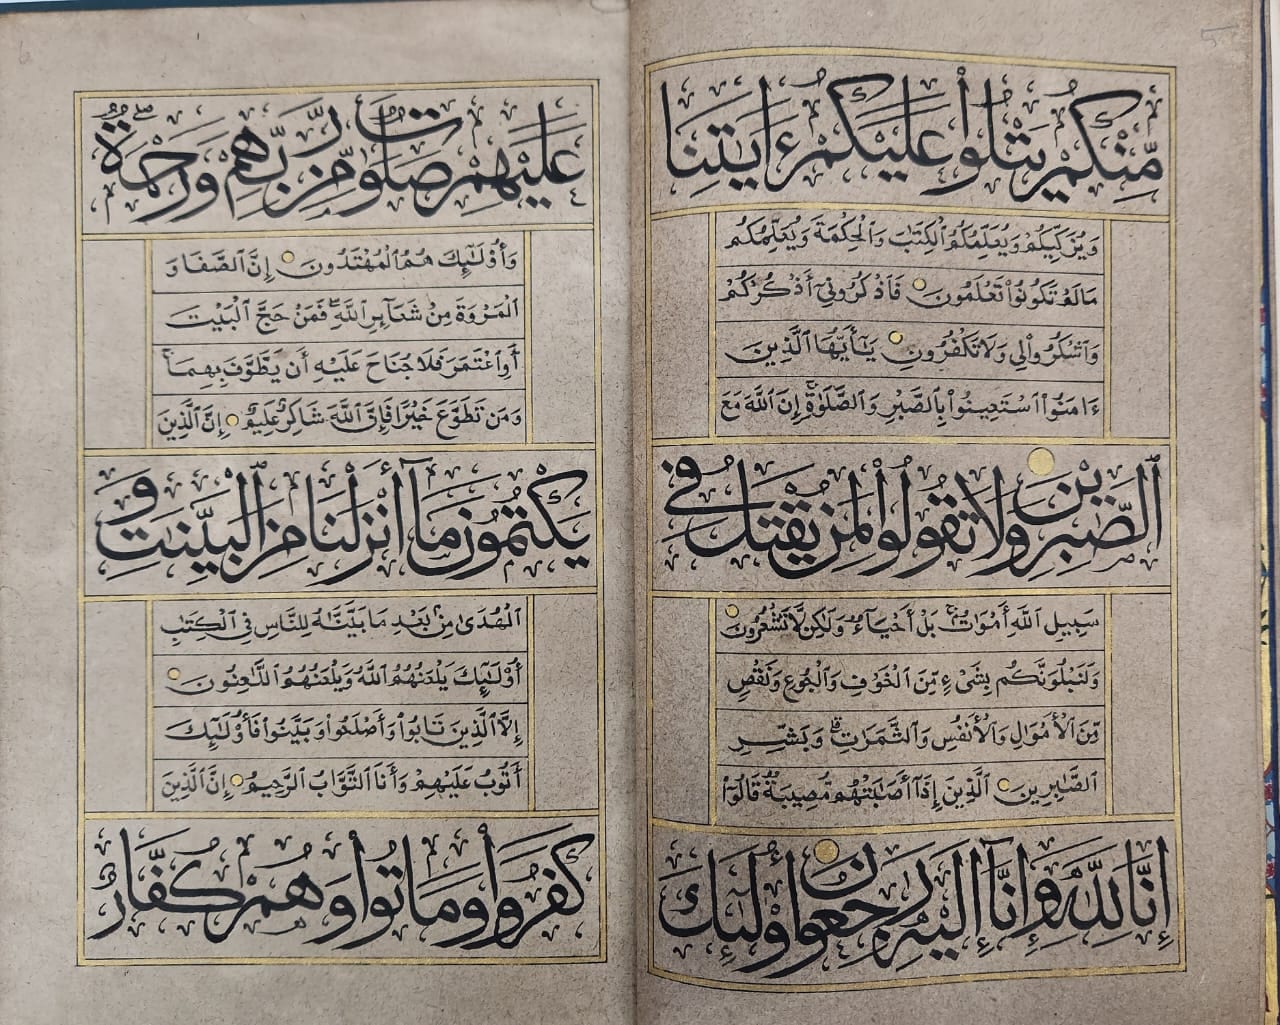 مِّنكُمْ يَتْلُوا۟ عَلَيْكُمْ ءَايَٰتِنَا
وَيُزَكِّيكُمْ وَيُعَلِّمُكُمُ ٱلْكِتَٰبَ وَٱلْحِكْمَةَ وَيُعَلِّمُكُم
مَّا لَمْ تَكُونُوا۟ تَعْلَمُونَ فَٱذْكُرُونِىٓ أَذْكُرْكُمْ
وَٱشْكُرُوا۟ لِى وَلَا تَكْفُرُونِ يَٰٓأَيُّهَا ٱلَّذِينَ
ءَامَنُوا۟ ٱسْتَعِينُوا۟ بِٱلصَّبْرِ وَٱلصَّلَوٰةِ إِنَّ ٱللَّهَ مَعَ
ٱلصَّٰبِرِينَ وَلَا تَقُولُوا۟ لِمَن يُقْتَلُ فِى
سَبِيلِ ٱللَّهِ أَمْوَٰتٌۢ بَلْ أَحْيَآءٌ وَلَٰكِن لَّا تَشْعُرُونَ
وَلَنَبْلُوَنَّكُم بِشَىْءٍ مِّنَ ٱلْخَوْفِ وَٱلْجُوعِ وَنَقْصٍ
مِّنَ ٱلْأَمْوَٰلِ وَٱلْأَنفُسِ وَٱلثَّمَرَٰتِ وَبَشِّرِ
ٱلصَّٰبِرِينَ ٱلَّذِينَ إِذَآ أَصَٰبَتْهُم مُّصِيبَةٌ قَالُوٓا۟
إِنَّا لِلَّهِ وَإِنَّآ إِلَيْهِ رَٰجِعُونَ أُو۟لَٰٓئِكَ
عَلَيْهِمْ صَلَوَٰتٌ مِّن رَّبِّهِمْ وَرَحْمَةٌ
وَأُو۟لَٰٓئِكَ هُمُ ٱلْمُهْتَدُونَ إِنَّ ٱلصَّفَا وَ
ٱلْمَرْوَةَ مِن شَعَآئِرِ ٱللَّهِ فَمَنْ حَجَّ ٱلْبَيْتَ
أَوِ ٱعْتَمَرَ فَلَا جُنَاحَ عَلَيْهِ أَن يَطَّوَّفَ بِهِمَا
وَمَن تَطَوَّعَ خَيْرًا فَإِنَّ ٱللَّهَ شَاكِرٌ عَلِيمٌ إِنَّ ٱلَّذِينَ
يَكْتُمُونَ مَآ أَنزَلْنَا مِنَ ٱلْبَيِّنَٰتِ وَ
ٱلْهُدَىٰ مِنۢ بَعْدِ مَا بَيَّنَّٰهُ لِلنَّاسِ فِى ٱلْكِتَٰبِ
أُو۟لَٰٓئِكَ يَلْعَنُهُمُ ٱللَّهُ وَيَلْعَنُهُمُ ٱللَّٰعِنُونَ
إِلَّا ٱلَّذِينَ تَابُوا۟ وَأَصْلَحُوا۟ وَبَيَّنُوا۟ فَأُو۟لَٰٓئِكَ
أَتُوبُ عَلَيْهِمْ وَأَنَا ٱلتَّوَّابُ ٱلرَّحِيمُ إِنَّ ٱلَّذِينَ
كَفَرُوا۟ وَمَاتُوا۟ وَهُمْ كُفَّارٌ